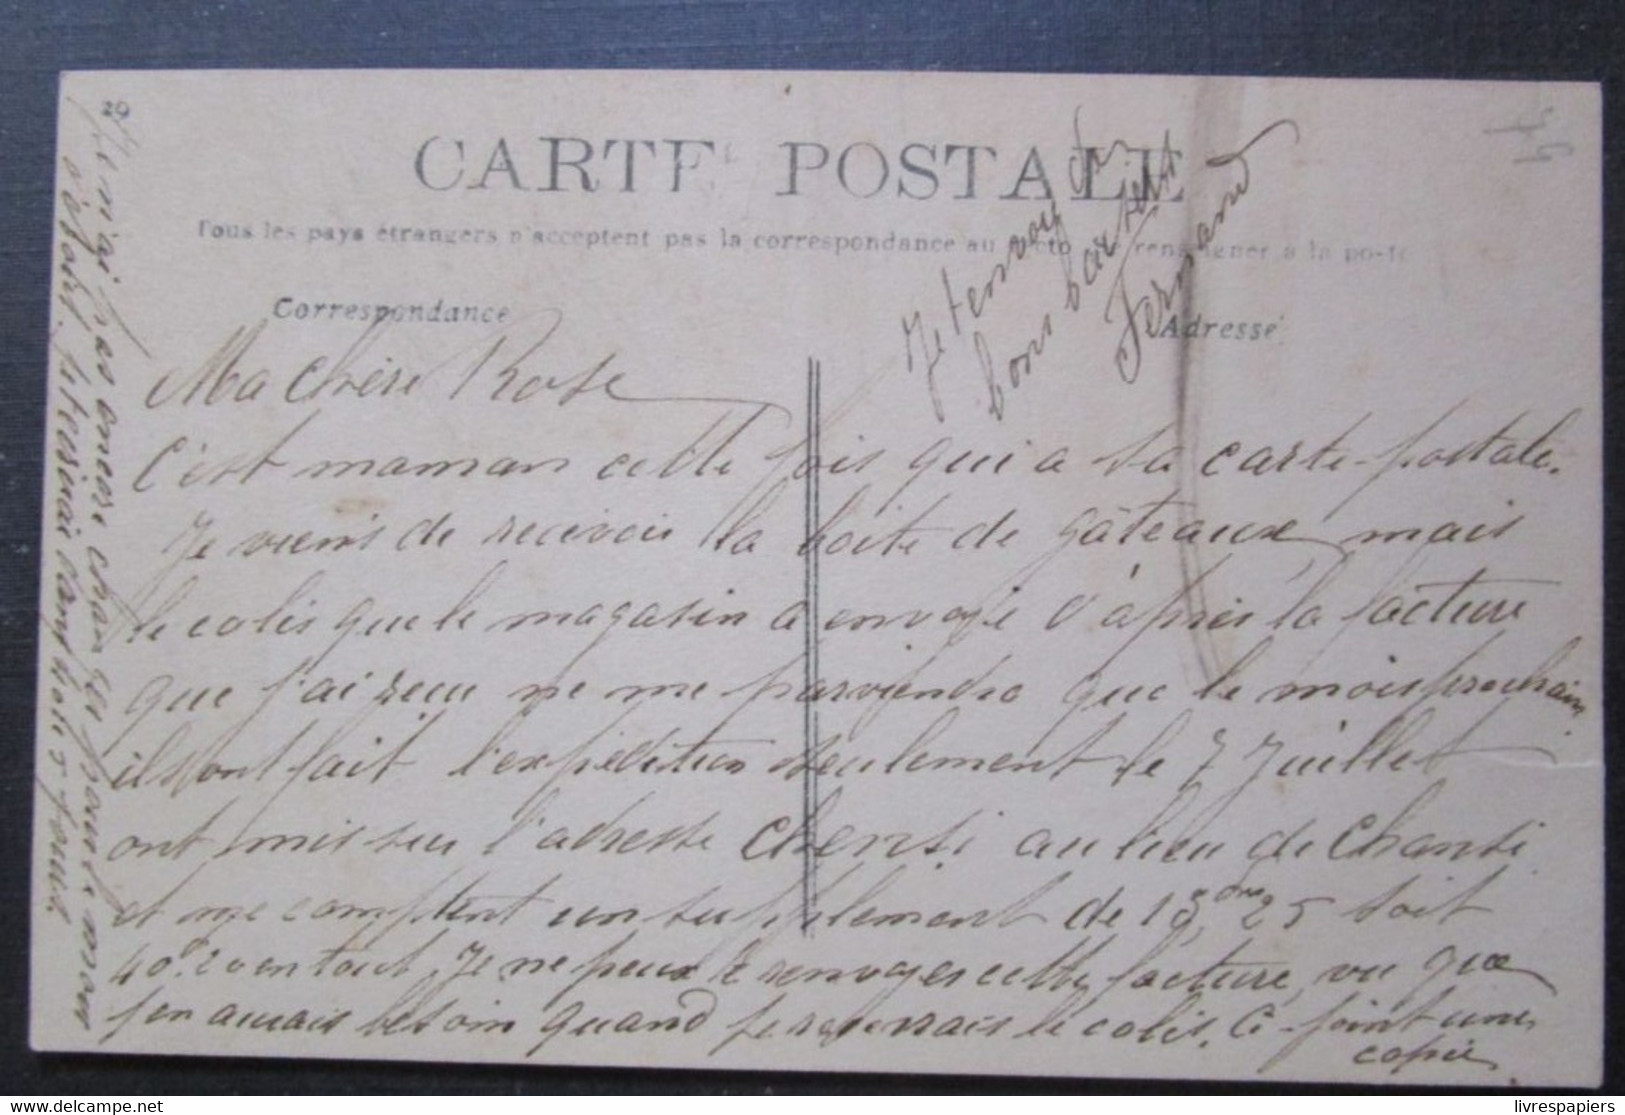 29
CARTE POSTALE
Tous les pays étrangers n'acceptent pas la correspondance au recto (se renseigner à la poste
Correspondance
Adresse
Je t'envoie de
bons baisers
Fernand
Ma chère Rose
C'est maman cette fois qui a sa carte-postale.
Je viens de recevoir la boite de gâteaux, mais
le colis que le magasin a envoyé d'après la facture
que j'ai reçu ne me parviendra que le mois prochain
ils ont fait l'expédition seulement le 7 Juillet
ont mis sur l'adresse Chensi au lieu de Chansi
et me comptent un supplément de 13 25 soit
40.20 en tout. Je ne peux renvoyer cette facture, vu que
j'en aurais besoin quand je recevrais le colis. Ci-joint une
copie
Je n'ai pas encore
d'abord
livrespapiers